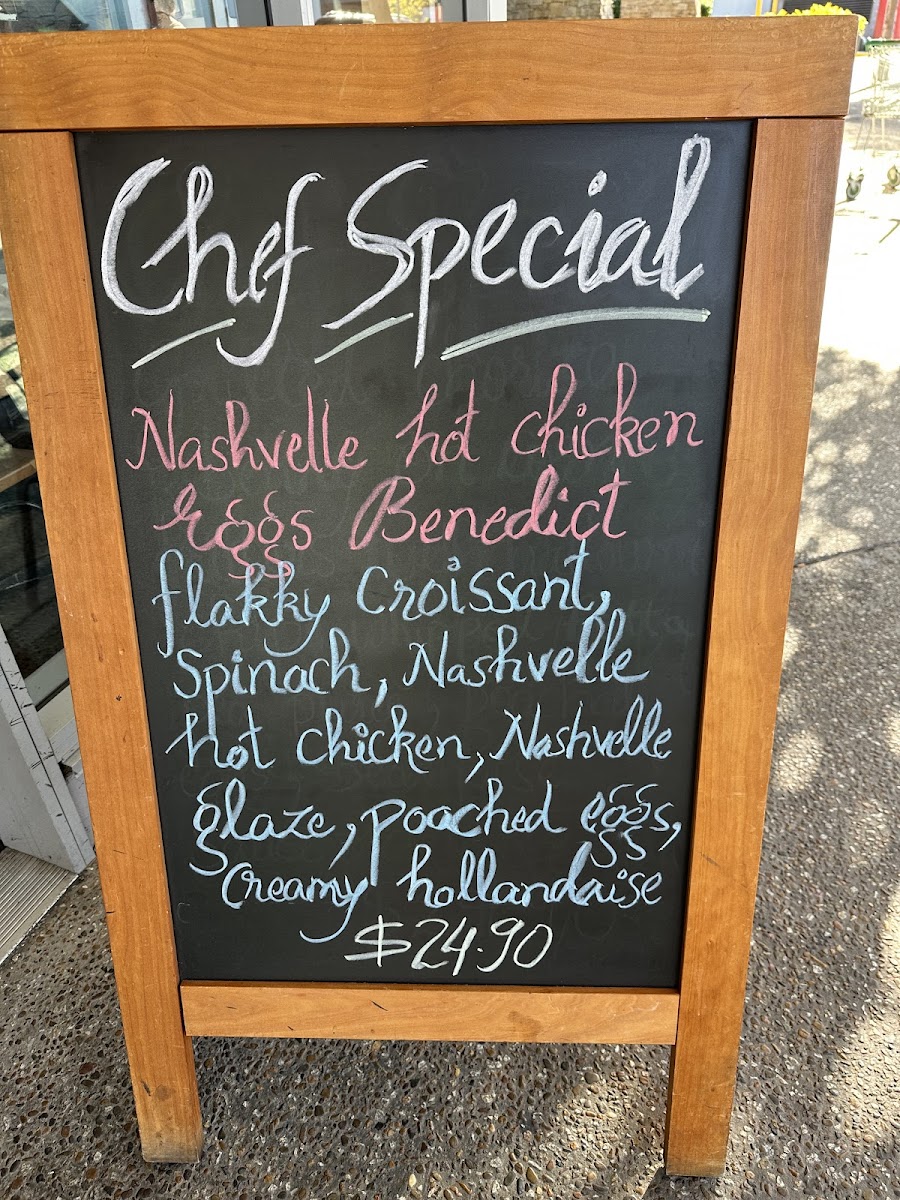 Chef Special
Nashvelle hot chicken
eggs Benedict
flakky Croissant,
Spinach, Nashvelle
hot chicken, Nashvelle
glaze, poached eggs,
Creamy hollandaise
$24.90